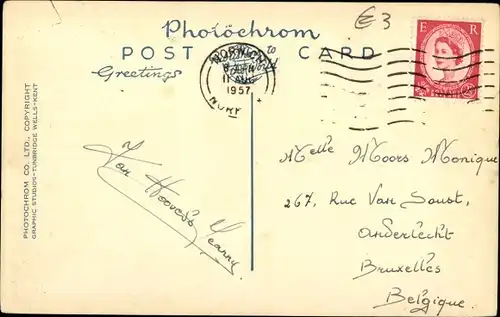 Photochrom
POST CARD
Greetings
€3
E R
NORWICH
11 AUG
1957
NORF
PHOTOCHROM CO. LTD., COPYRIGHT
GRAPHIC STUDIOS-TUNBRIDGE WELLS-KENT
Van Hoovels Jeanny
Melle Moors Monique
267, Rue Van Soust,
Anderlecht
Bruxelles
Belgique.